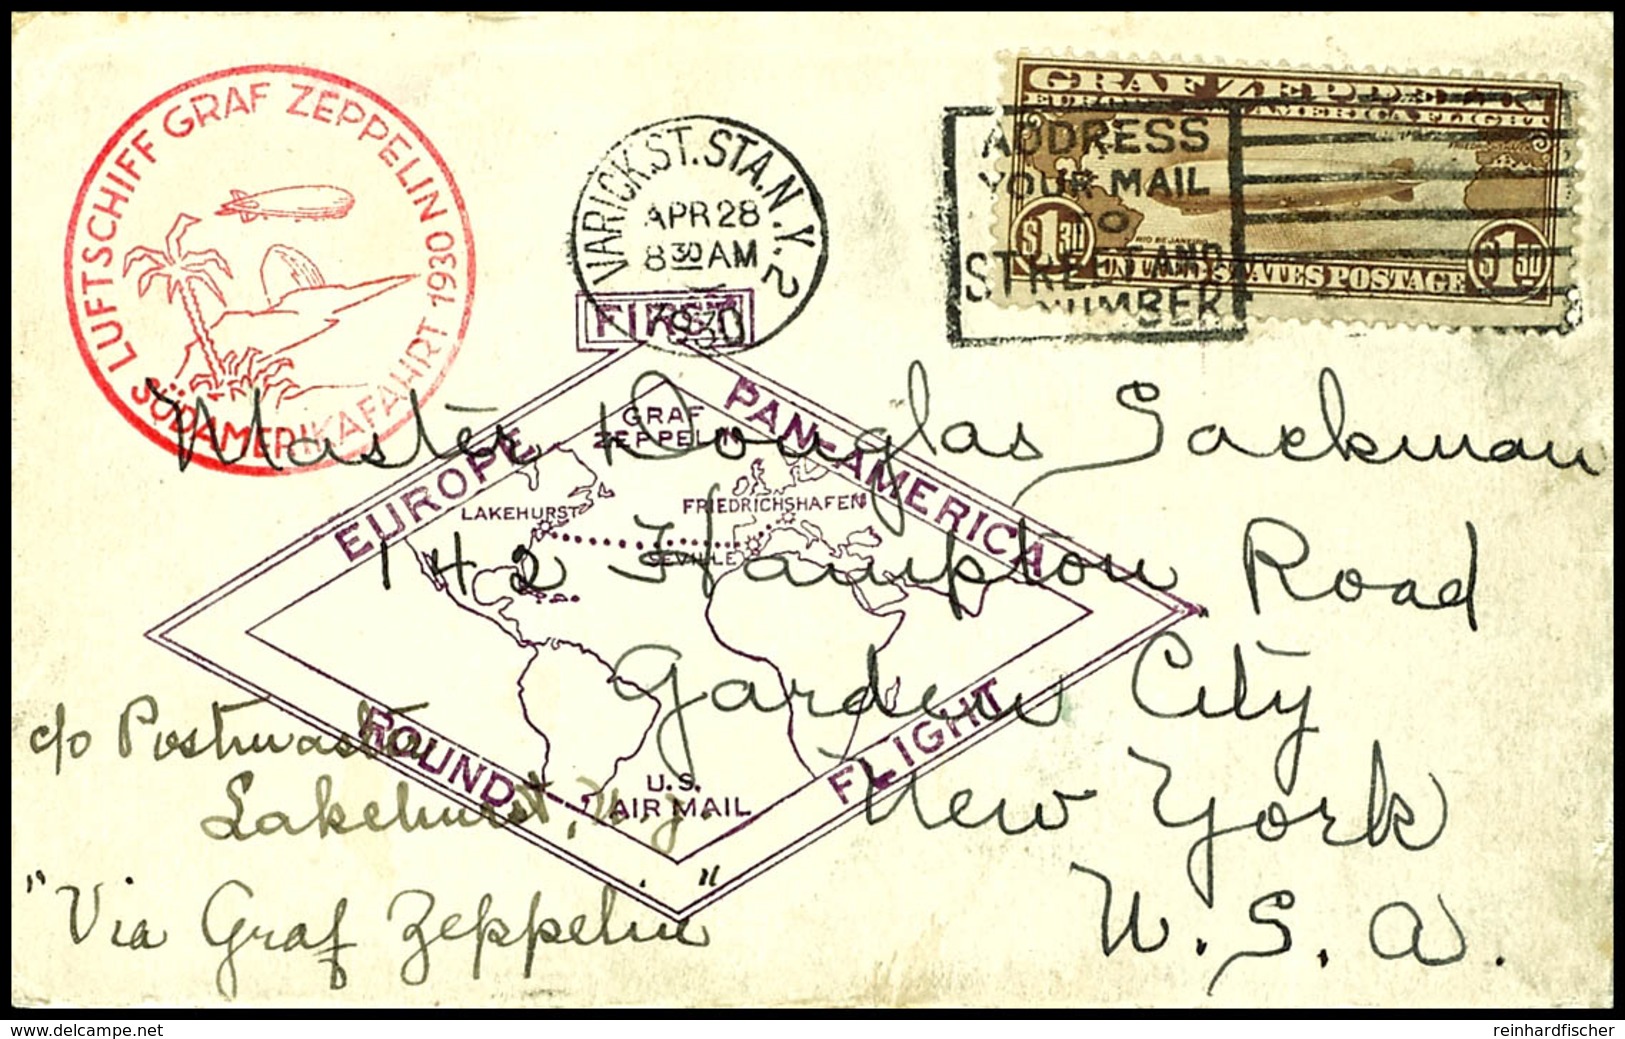 LUFTSCHIFF GRAF ZEPPELIN 1930
SÜDAMERIKAFAHRT
VARICK ST. STA. N.Y. 2
APR 28
8 30 AM
1930
GRAF ZEPPELIN
EUROPE PAN-AMERICA FLIGHT
FRIEDRICHSHAFEN
RIO DE JANEIRO
$1.30 UNITED STATES POSTAGE $1.30
ADDRESS
YOUR MAIL
TO
STREET AND
NUMBER
FIRST
EUROPE PAN-AMERICA
ROUND FLIGHT
GRAF
ZEPPELIN
LAKEHURST
FRIEDRICHSHAFEN
SEVILLE
U.S.
AIR MAIL
Master Douglas Sackman
142 Hampton Road
Garden City
New York
U. S. A.
c/o Postmaster
Lakehurst, N.J.
"Via Graf Zeppelin"
www.delcampe.net
reinhardfischer